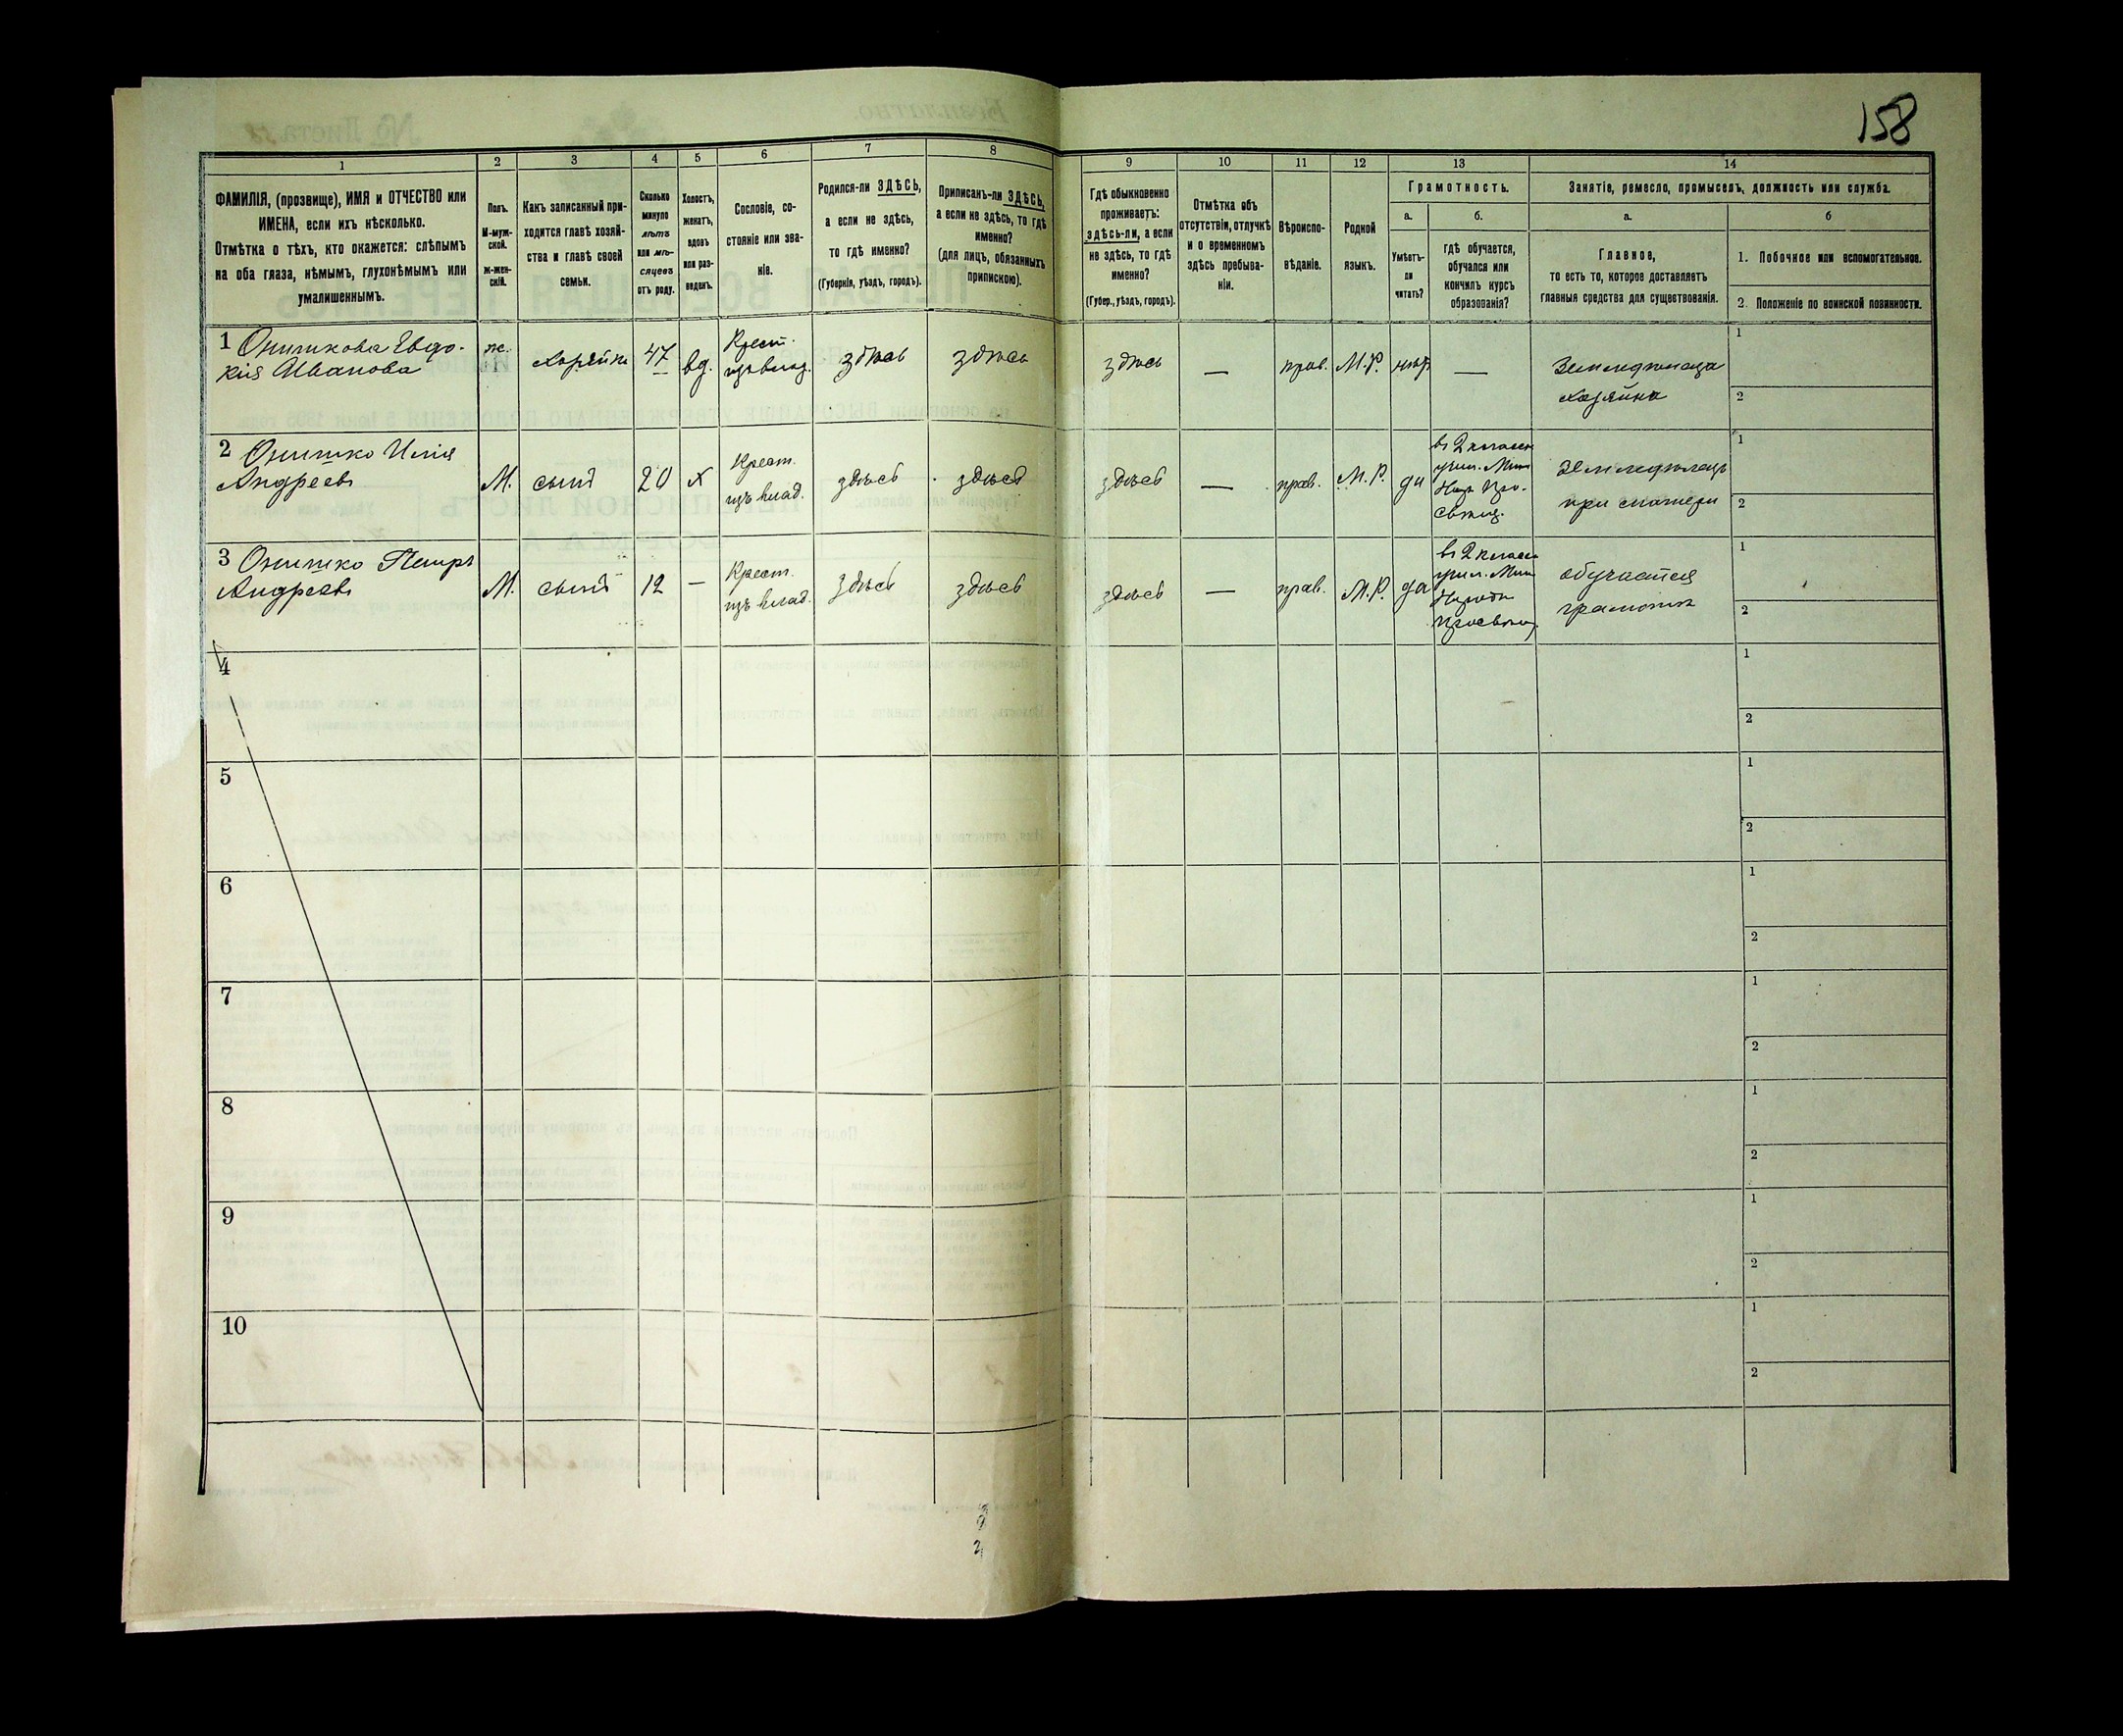 158
1 2 3 4 5 6 7 8 9 10 11 12 13 14
ФАМИЛІЯ, (прозвище), ИМЯ и ОТЧЕСТВО или
ИМЕНА, если ихъ нѣсколько.
Отмѣтка о тѣхъ, кто окажется: слѣпымъ
на оба глаза, нѣмымъ, глухонѣмымъ или
умалишеннымъ.
Полъ.
М-муж-
ской.
ж-жен-
скій.
Какъ записанный при-
ходится главѣ хозяй-
ства и главѣ своей
семьи.
Сколько
минуло
лѣтъ
или мѣ-
сяцевъ
отъ роду.
Холостъ,
женатъ,
вдовъ
или раз-
веденъ.
Сословіе, со-
стояніе или зва-
ніе.
Родился-ли ЗДѢСЬ,
а если не здѣсь,
то гдѣ именно?
(Губернія, уѣздъ, городъ).
Приписанъ-ли ЗДѢСЬ,
а если не здѣсь, то гдѣ
именно?
(для лицъ, обязанныхъ
припискою).
Гдѣ обыкновенно
проживаетъ:
здѣсь-ли, а если
не здѣсь, то гдѣ
именно?
(Губер., уѣздъ, городъ).
Отмѣтка объ
отсутствіи, отлучкѣ
и о временномъ
здѣсь пребыва-
ніи.
Вѣроиспо-
вѣданіе.
Родной
языкъ.
Грамотность.
а.
Умѣетъ-
ли
читать?
б.
гдѣ обучается,
обучался или
кончилъ курсъ
образованія?
Занятіе, ремесло, промыселъ, должность или служба.
а.
Главное,
то есть то, которое доставляетъ
главныя средства для существованія.
б
1. Побочное или вспомогательное.
2. Положеніе по воинской повинности.
1 Онишкова Евдо-
кія Иванова
ж.
хозяйка
47
вд.
Крест.
изъ влад.
здѣсь
здѣсь
здѣсь
—
прав.
М.Р.
нѣтъ
—
Земледѣлица
хозяйка
1
2
2 Онишко Илія
Андреевъ
М.
сынъ
20
х
Крест.
изъ влад.
здѣсь
здѣсь
здѣсь
—
прав.
М.Р.
да
въ 2 классн
учил. Мин
Нар. Про-
свѣщ.
земледѣлецъ
при матери
1
2
3 Онишко Петръ
Андреевъ
М.
сынъ
12
—
Крест.
изъ влад.
здѣсь
здѣсь
здѣсь
—
прав.
М.Р.
да
въ 2 классн
учил. Мин
Народн
Просвѣщ
обучается
грамотѣ
1
2
4
1
2
5
1
2
6
1
2
7
1
2
8
1
2
9
1
2
10
1
2